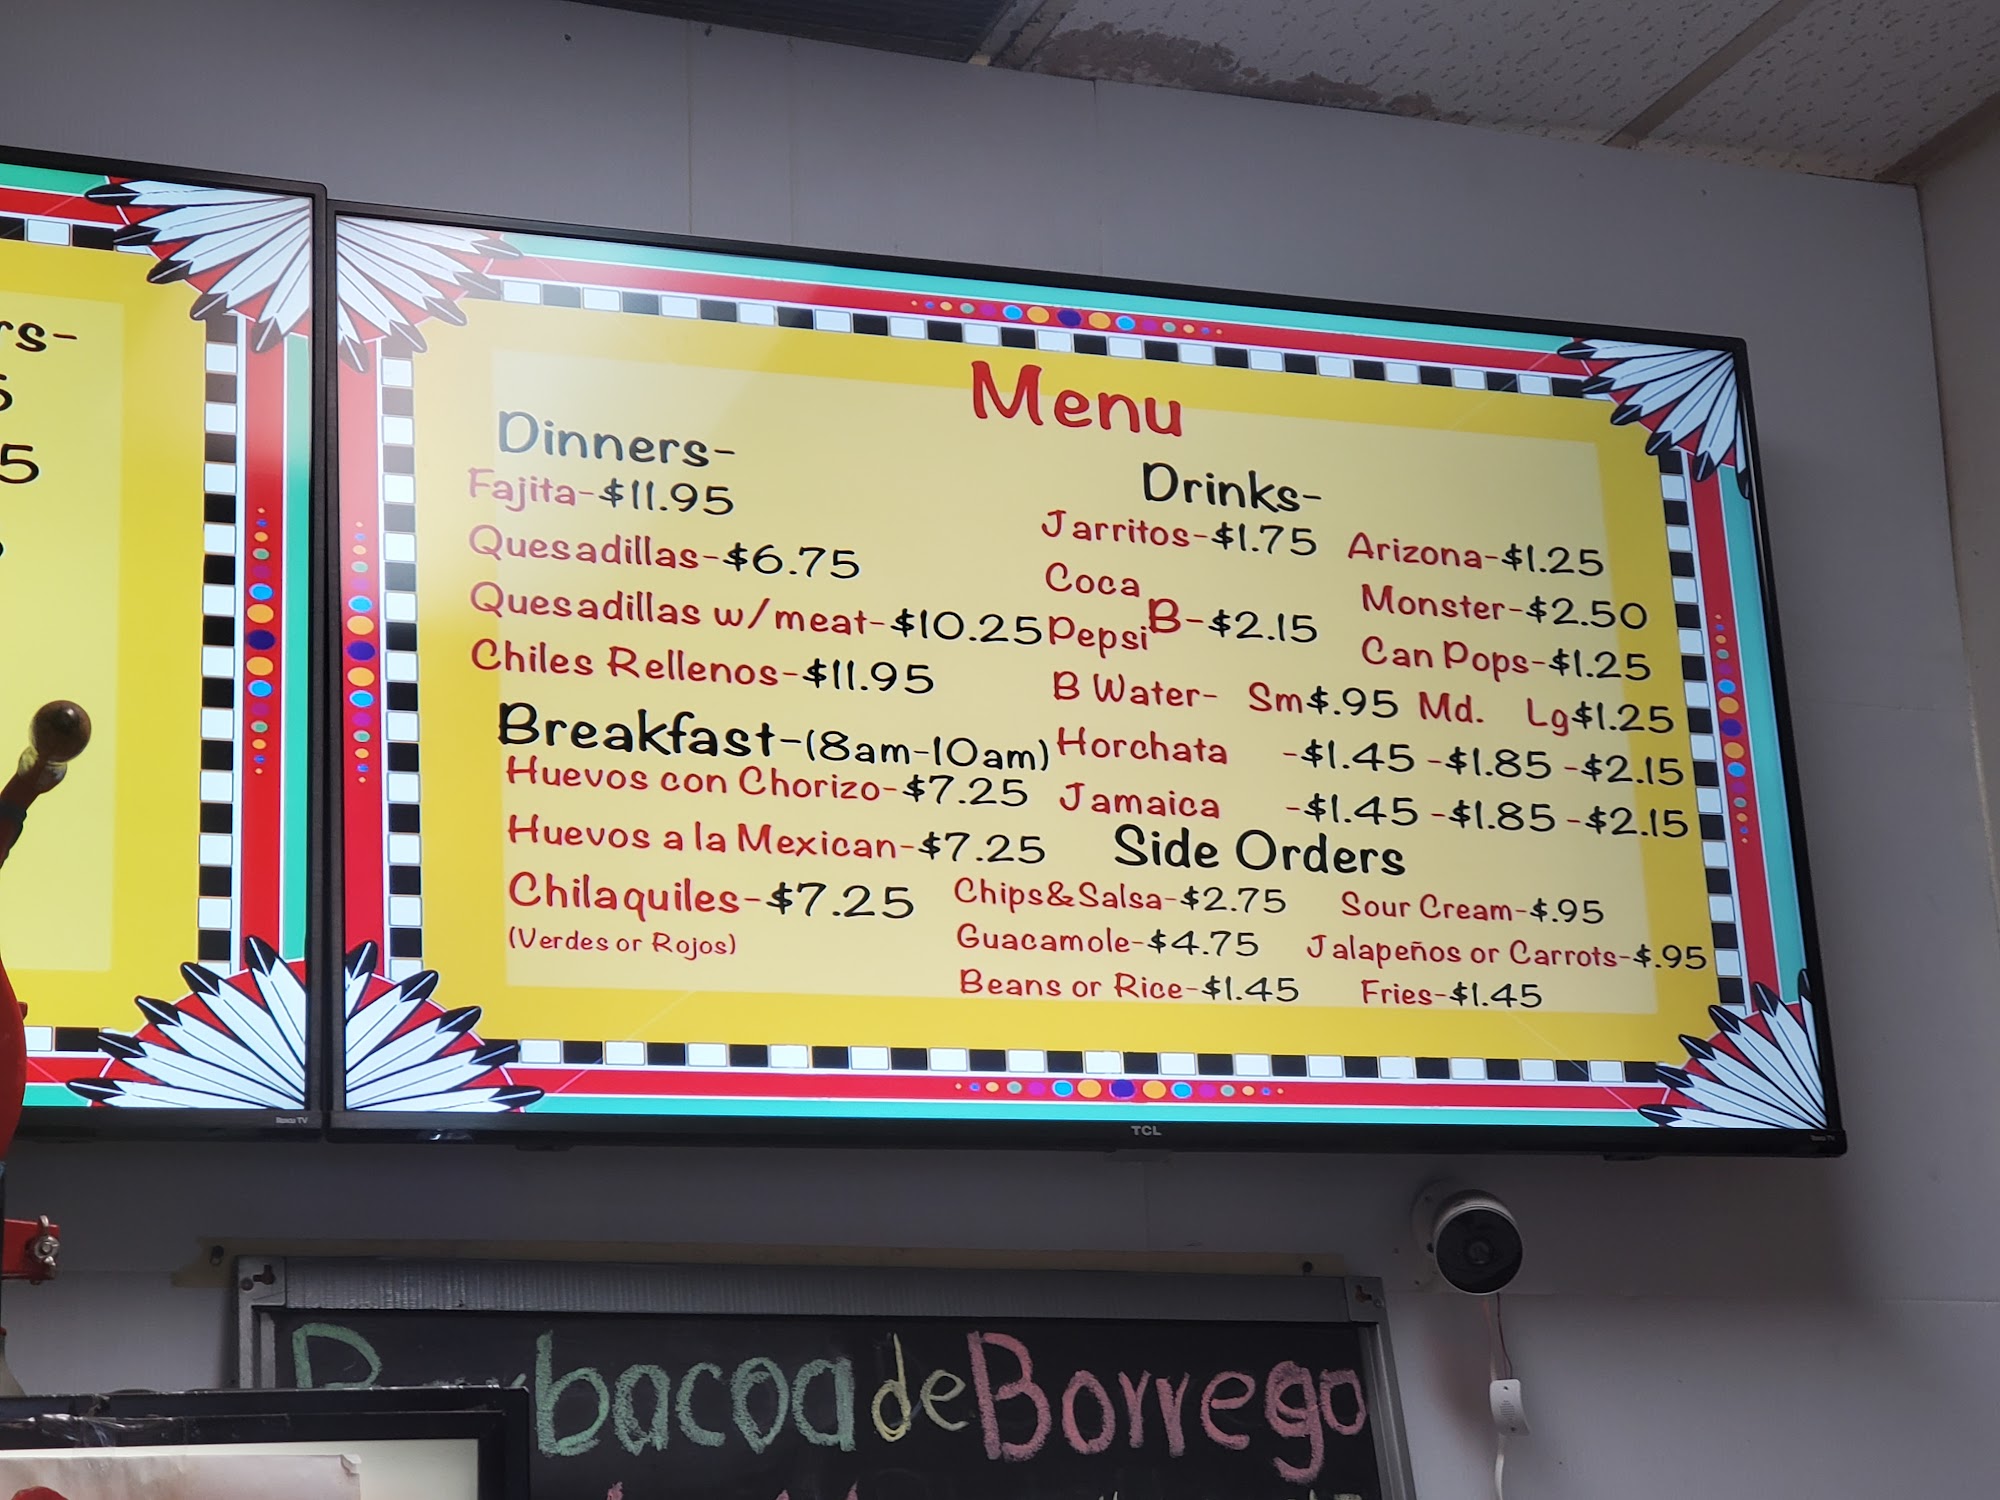 rs-
5
5
Menu
Dinners-
Fajita-$11.95
Quesadillas-$6.75
Quesadillas w/meat-$10.25
Chiles Rellenos-$11.95
Breakfast-(8am-10am)
Huevos con Chorizo-$7.25
Huevos a la Mexican-$7.25
Chilaquiles-$7.25
(Verdes or Rojos)
Drinks-
Jarritos-$1.75 Arizona-$1.25
Coca
Pepsi B-$2.15
Monster-$2.50
Can Pops-$1.25
B Water- Sm$.95 Md. Lg$1.25
Horchata -$1.45 -$1.85 -$2.15
Jamaica -$1.45 -$1.85 -$2.15
Side Orders
Chips&Salsa-$2.75 Sour Cream-$.95
Guacamole-$4.75 Jalapeños or Carrots-$.95
Beans or Rice-$1.45 Fries-$1.45
Roku TV
TCL
Roku TV
Barbacoa de Borrego